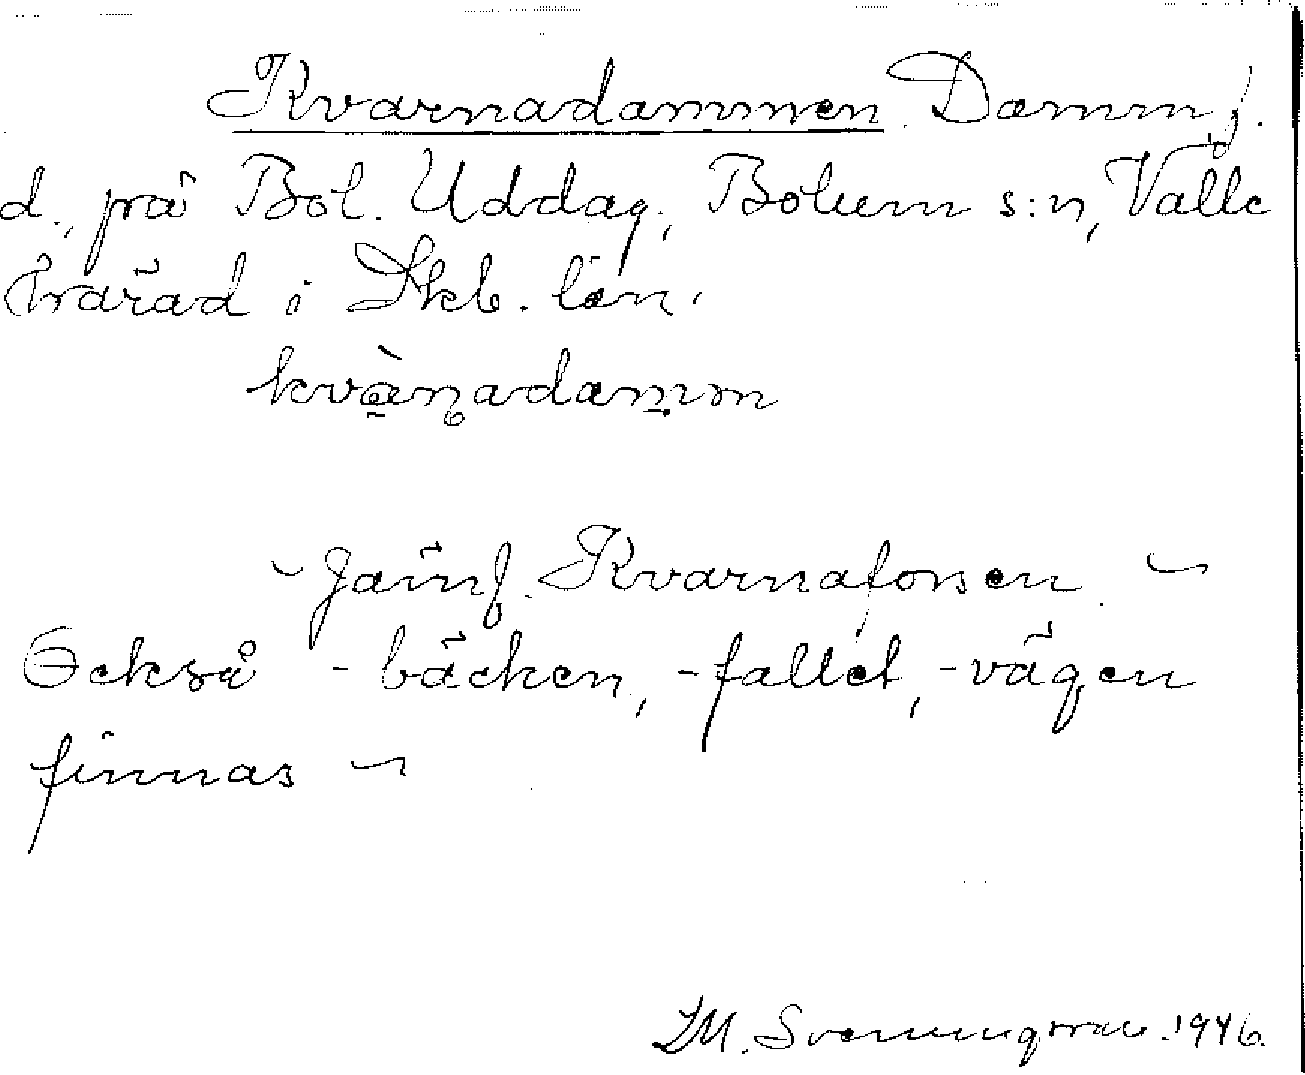 Kvarnadammen. Damm, f.
d., på Bol. Uddag., Bolum s:n, Valle
härad i Skb. län.
kvà̱n̥adam̥m
- Jämf. Kvarnafonsen. -
Också -bäcken, -fallet, -vägen
finnas -
M. Svenningsson. 1946.